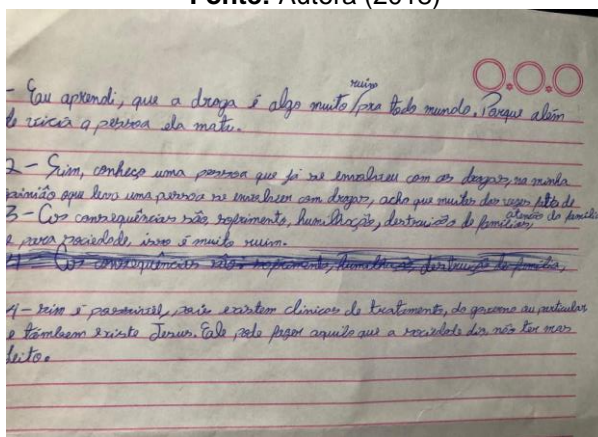 Fonte: Autora (2018)
- Eau aprendi, que a droga é algo muito ruim pra todo mundo. Porque além
de vicia a pessoa ela mata.
2 - Sim, conheço uma pessoa que já se envolveu com as drogas, na minha
opinião oque leva uma pessoa se envolver com drogas, acho que muitas das vezes falta de
atenção da familia
3 - As consequências são, sofrimento, humilhação, destruição de familias,
e para sociedade, isso é muito ruim.
4 - As consequências são: sofrimento, humilhação destruição de familia,
4 - sim é possivel, pois existem clinicas de tratamento, do governo ou particular
e também existe Jesus. Eale pode fazer aquilo que a sociedade diz não ter mas
jeito.